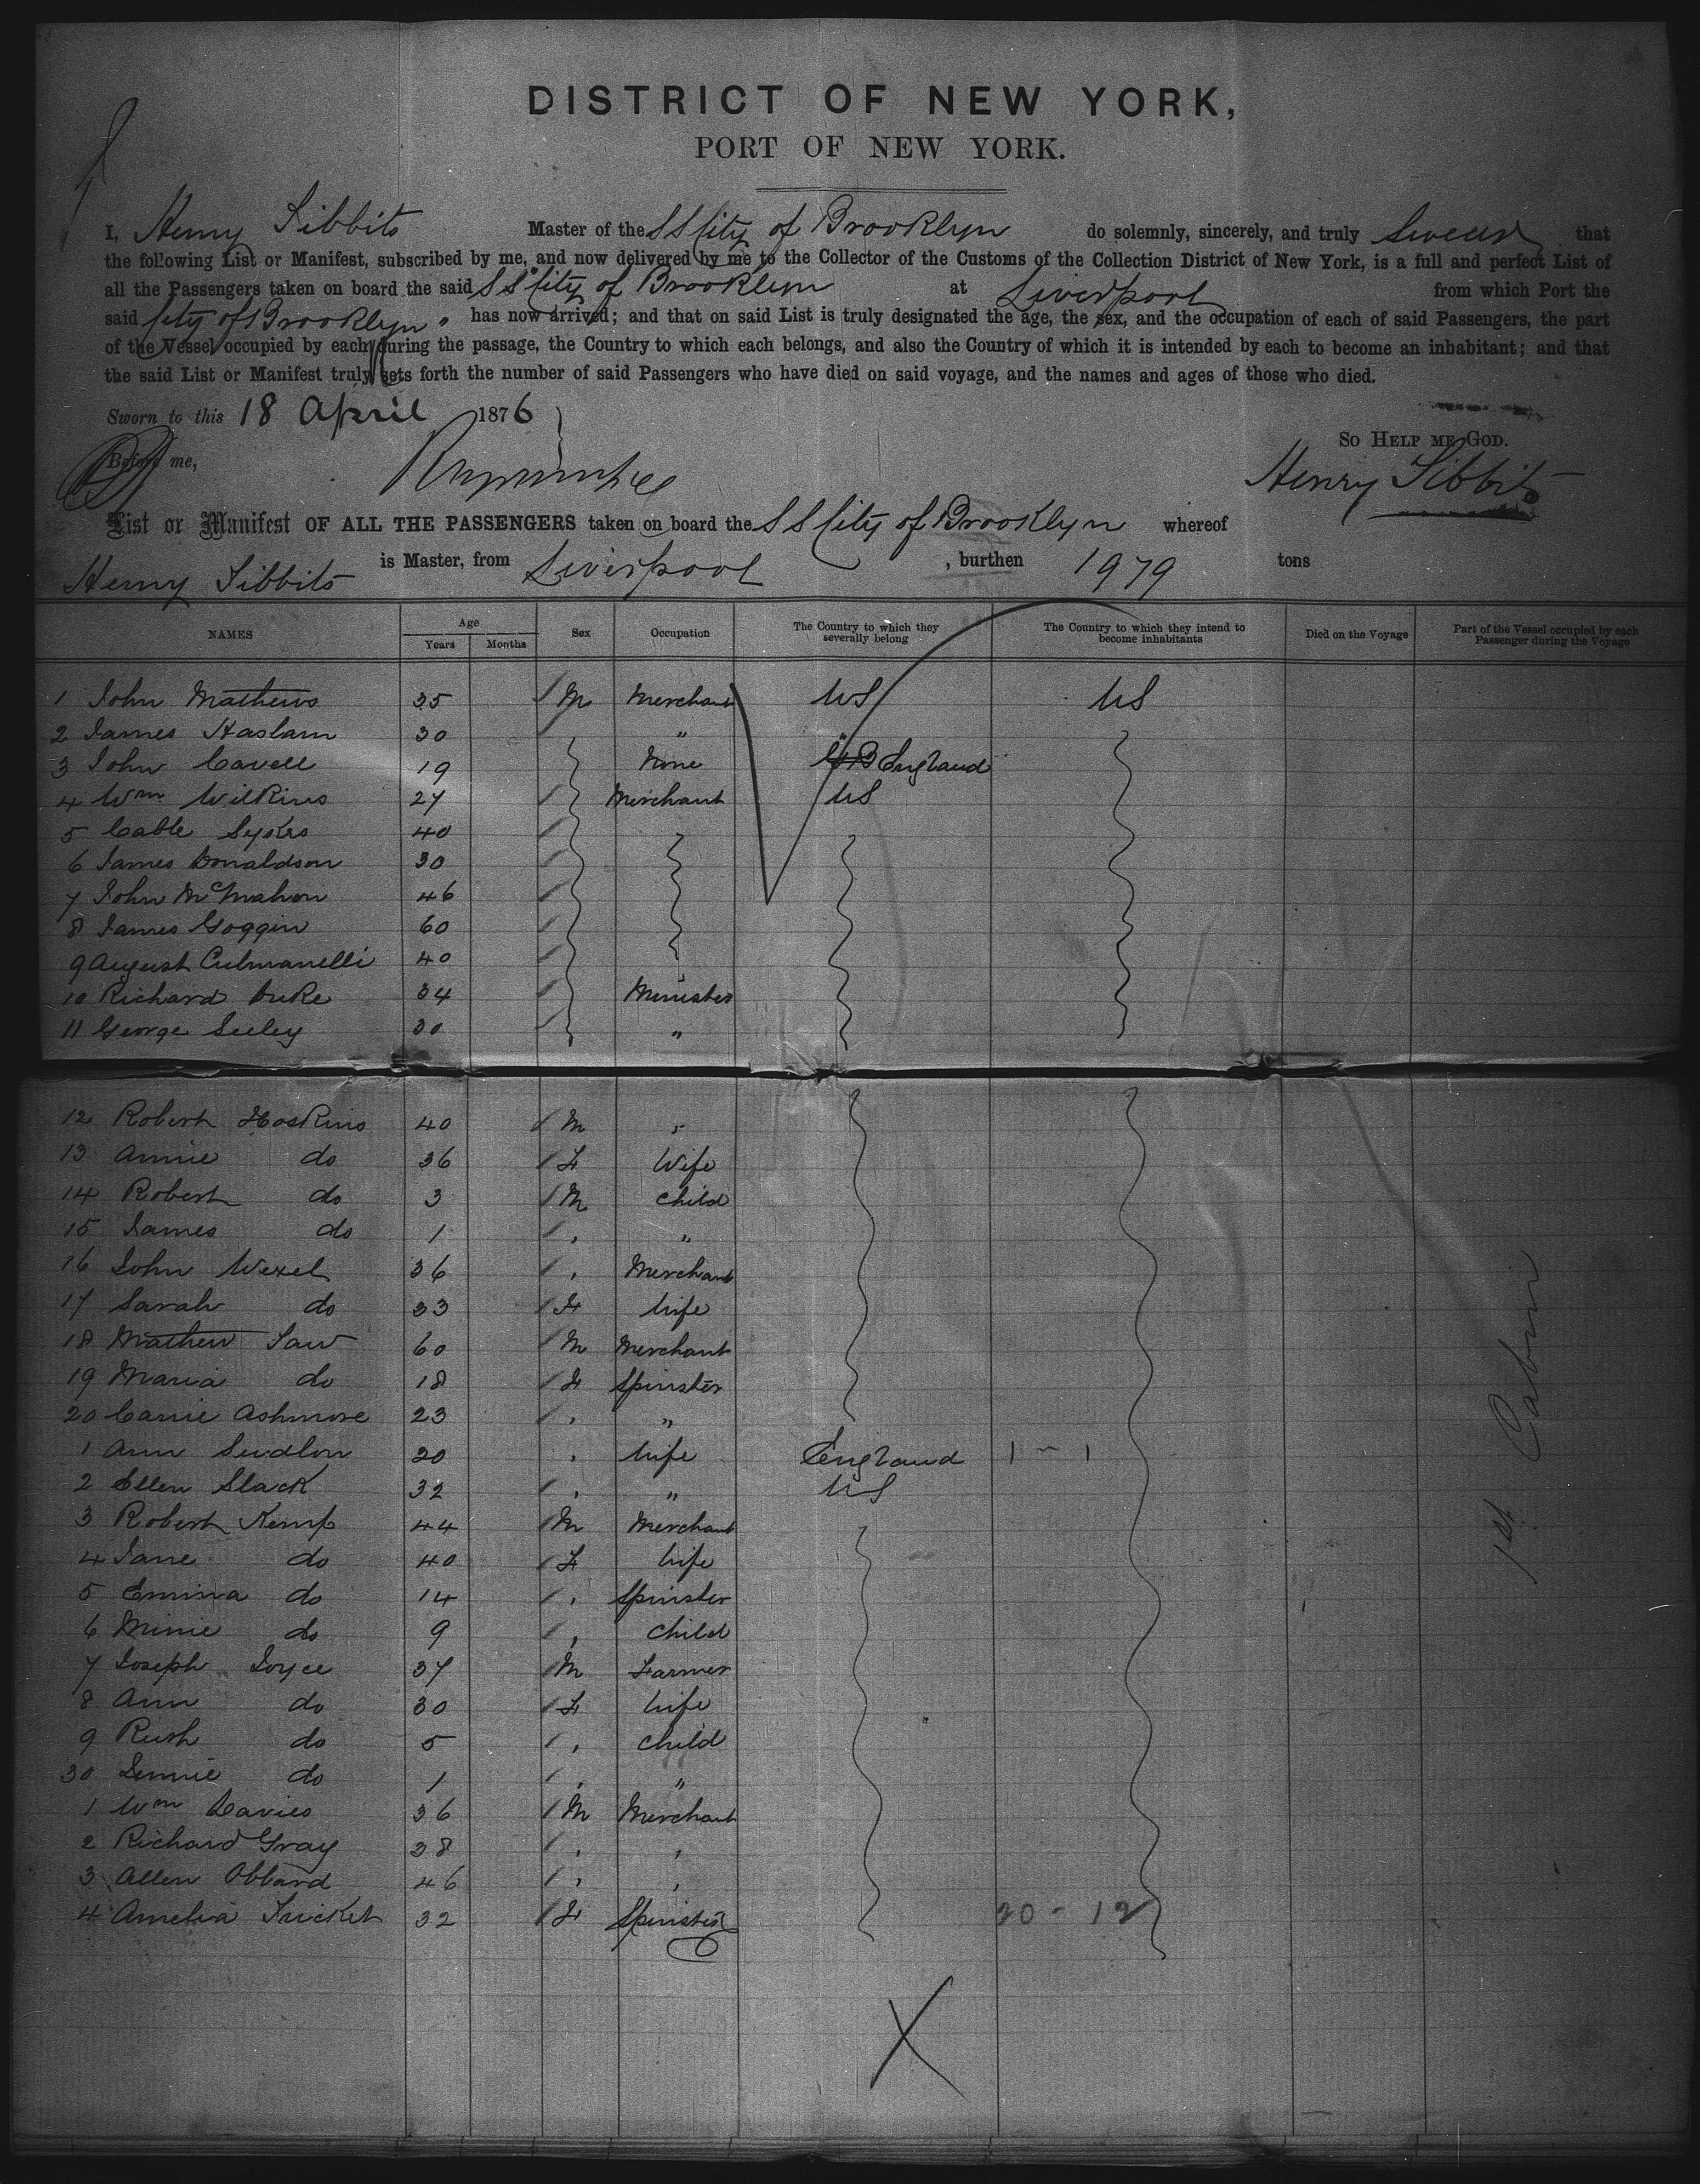 DISTRICT OF NEW YORK,
PORT OF NEW YORK.
I, Henry Tibbits Master of the SS City of Brooklyn do solemnly, sincerely, and truly Swear that
the following List or Manifest, subscribed by me, and now delivered by me to the Collector of the Customs of the Collection District of New York, is a full and perfect List of
all the Passengers taken on board the said SS City of Brooklyn at Liverpool from which Port the
said City of Brooklyn has now arrived; and that on said List is truly designated the age, the sex, and the occupation of each of said Passengers, the part
of the Vessel occupied by each during the passage, the Country to which each belongs, and also the Country of which it is intended by each to become an inhabitant; and that
the said List or Manifest truly sets forth the number of said Passengers who have died on said voyage, and the names and ages of those who died.
Sworn to this 18 April 1876
So Help me God.
Before me,
Henry Tibbits
List or Manifest OF ALL THE PASSENGERS taken on board the SS City of Brooklyn whereof
Henry Tibbits is Master, from Liverpool, burthen 1979 tons
NAMES Age Years Months Sex Occupation The Country to which they severally belong The Country to which they intend to become inhabitants Died on the Voyage Part of the Vessel occupied by each Passenger during the Voyage
1 John Mathews 35 M Merchant US US
2 James Haslam 30 "
3 John Cavell 19 None England
4 Wm Wilkins 27 Merchant US
5 Cable Sykes 40
6 James Donaldson 30
7 John McMahon 46
8 James Goggin 60
9 August Culmanelli 40
10 Richard Duke 34 Minister
11 George Seeley 30 "
12 Robert Hoskins 40 M "
13 Annie do 36 F Wife
14 Robert do 3 M Child
15 James do 1 " "
16 John Wexel 36 " Merchant
17 Sarah do 33 F Wife
18 Mathew Law 60 M Merchant
19 Maria do 18 F Spinster
20 Carrie Ashmore 23 " "
1 Ann 20 " Wife England 1 - 1
2 Ellen Slack 32 " " US
3 Robert Kemp 44 M Merchant
4 Jane do 40 F Wife
5 Emma do 14 " Spinster
6 Minie do 9 " Child
7 Joseph Joyce 37 M Farmer
8 Ann do 30 F Wife
9 Ruth do 5 " Child
30 Jennie do 1 " "
1 Wm Davies 36 M Merchant
2 Richard Gray 38 " "
3 Allen Obbard 46 " "
4 Amelia Tricket 32 F Spinster 20 - 12
1st Cabin